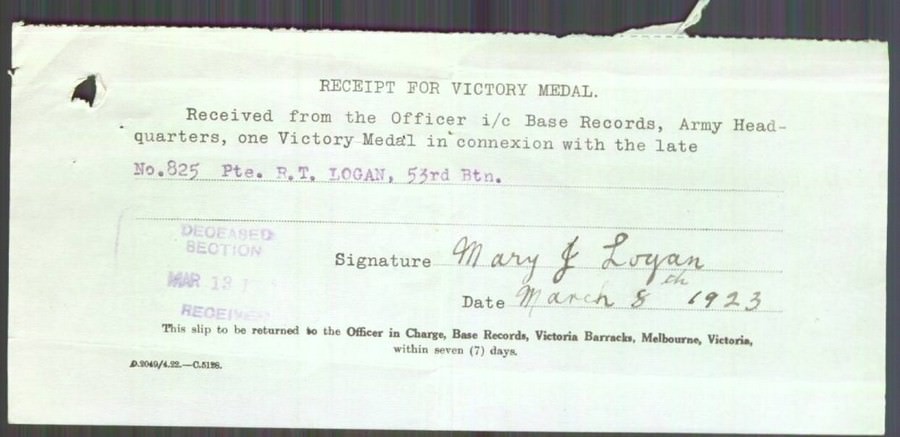 RECEIPT FOR VICTORY MEDAL.
Received from the Officer i/c Base Records, Army Head-
quarters, one Victory Medal in connexion with the late
No.825 Pte. R.T. LOGAN, 53rd Btn.
DECEASED
SECTION
MAR 13
RECEIVED
Signature Mary J Logan
Date March 8th 1923
This slip to be returned to the Officer in Charge, Base Records, Victoria Barracks, Melbourne, Victoria,
within seven (7) days.
D.2049/4.22.—C.5128.